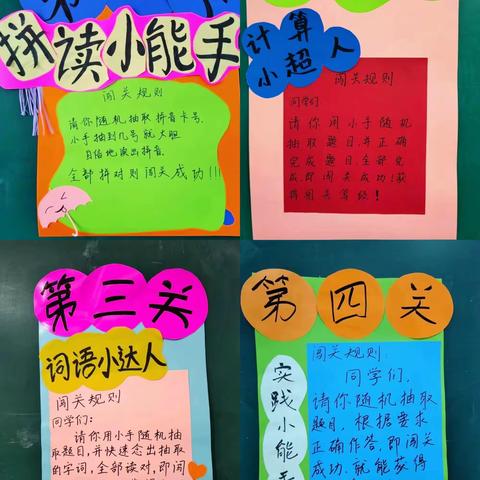 第
拼读小能手
闯关规则
请你随机抽取拼音卡号,
小手抽到几号就大胆
自信地读出拼音.
全部拼对则闯关成功!!!
计算
小超人
闯关规则
同学们
请你用小手随机
抽取题目,并正确
完成题目,全部完
成,即闯关成功!获
得闯关等级!
第三关
词语小达人
闯关规则
同学们:
请你用小手随机抽
取题目,并快速念出抽取
的字词,全部读对,即闯
第四关
实践小能手
闯关规则:
同学们,
请你随机抽取
题目,根据要求
正确作答,即闯关
成功.就能获得